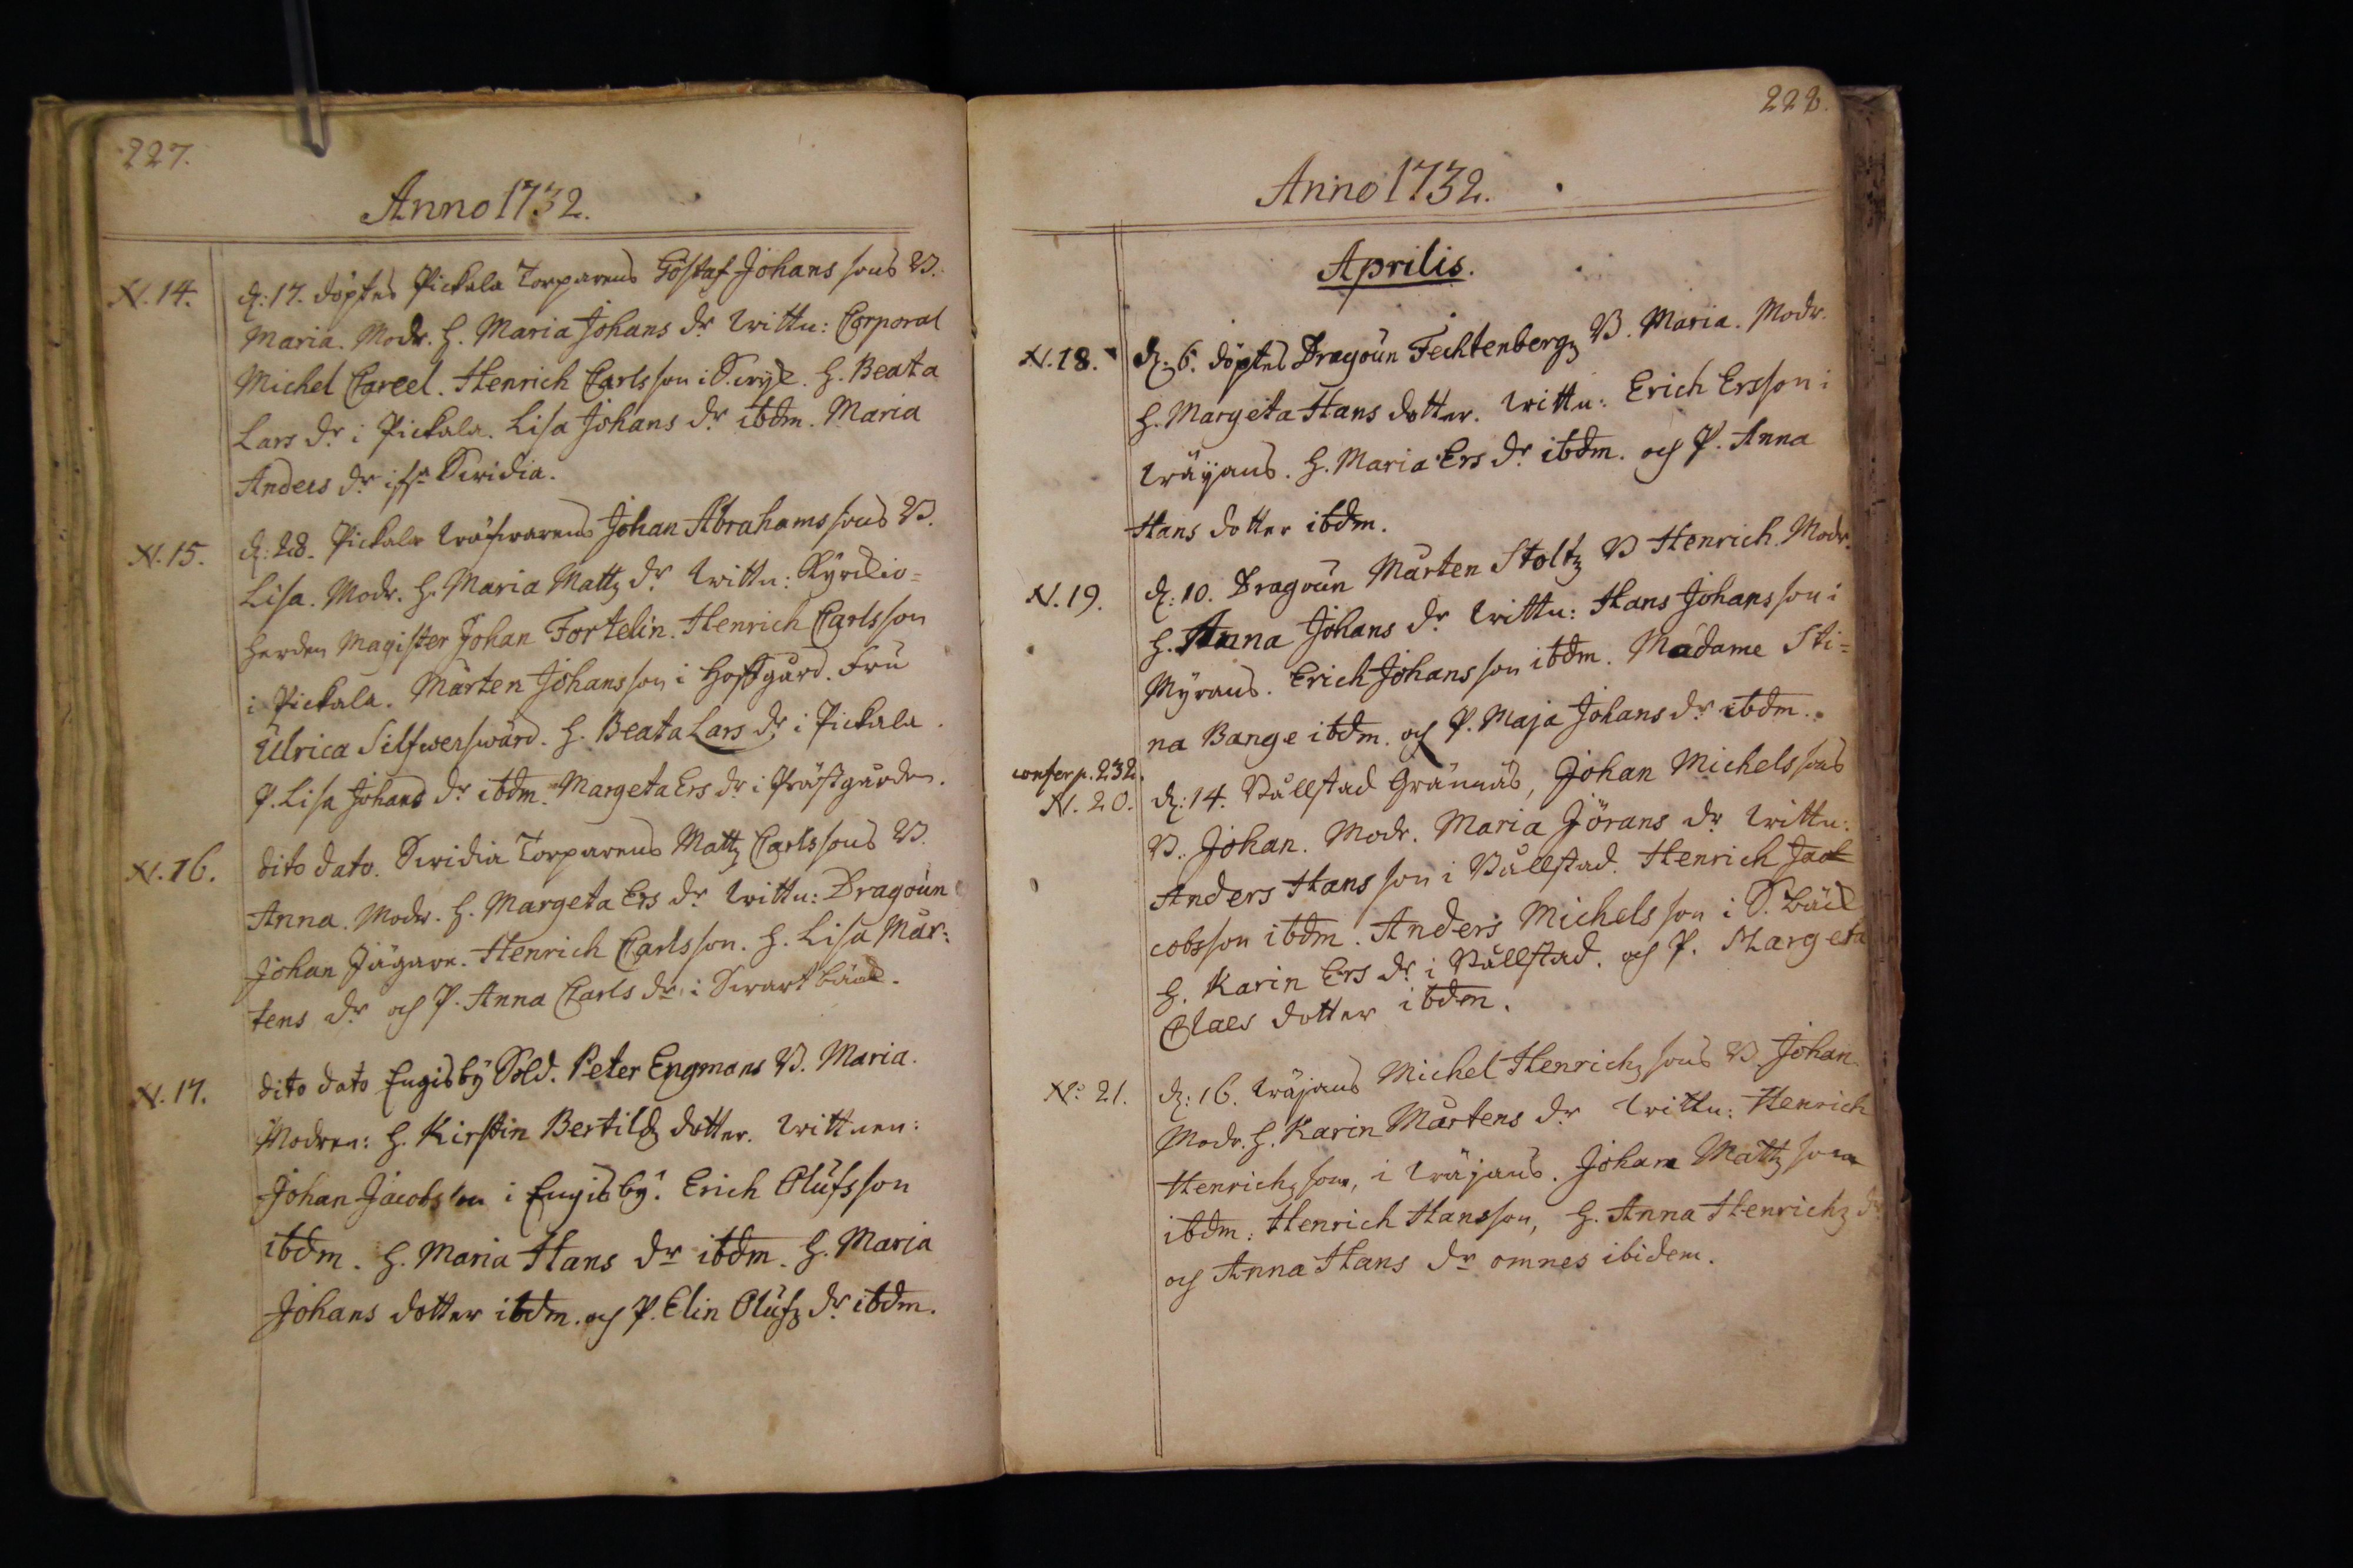 227.
Anno 1732.
N. 14.
d: 17. döptes Pickala Torparens Göstaf Johans sons B.
Maria. Modr. H. Maria Johans dr Wittn: Corporal
Michel Carcel. Henrich Carlsson i H. Beata
Lars dr i Pickala. Lisa Johans dr ibdm. Maria
Anders dr Swidia.
N. 15.
d: 28. Pickala Johan Abrahams sons B.
Lisa. Modr. H. Maria Mattz dr Wittn: Kyrckio=
herden Magister Johan Fortelin. Henrich Carlsson
i Pickala. Mårten Johansson i Hofgård. Fru
Ulrica Silfwerswärd. H. Beata Lars dr i Pickala.
P. Lisa Johans dr ibdm. Margeta Ers dr i Prästgården.
N. 16.
dito dato. Swidia Torparens Mattz Carlssons B.
Anna. Modr. H. Margeta Ers dr Wittn: Dragoun
Johan Jägare. Henrich Carlsson. H. Lisa Mår=
tens dr och P. Anna Carls dr i Swartbäck.
N. 17.
dito dato Engisby Sold. Peter Engmans B. Maria.
Modren: H. Kirstin Bertilds dotter. Wittnen:
Johan Jacobsson i Engisby. Erich Olufsson
ibdm. H. Maria Hans dr ibdm. H. Maria
Johans dotter ibdm. och P. Elin Olufz dr ibdm.
228.
Anno 1732.
Aprilis.
N. 18.
d: 6. döptes Dragoun Fechtenbergz B. Maria. Modr.
H. Margeta Hans dotter. Wittn: Erich Ersson i
Wäyans. H. Maria Ers dr ibdm. och P. Anna
Hans dotter ibdm.
N. 19.
d: 10. Dragoun Mårten Stoltz B Henrich. Modr.
H. Anna Johans dr Wittn: Hans Johansson i
Myrans. Erich Johansson ibdm. Madame Sti=
na Bange ibdm. och P. Maja Johans dr ibdm.
confer p. 232.
N. 20.
d: 14. Vållstad Grännäs, Johan Michelssons
B. Johan. Modr. Maria Jörans dr Wittn:
Anders Hansson i Vållstad. Henrich Ja
cobsson ibdm. Anders Michelsson i S. Bäck
H. Karin Ers dr i Vållstad. och P. Margeta
Claes dotter ibdm.
No 21.
d: 16. Wäjans Michel Henrichz sons B. Johan.
Modr. H. Karin Mårtens dr Wittn: Henrich
Henrichz son, i Wäjans. Johan Mattz son
ibdm: Henrich Hansson, H. Anna Henrichz dr
och Anna Hans dr omnes ibidem.